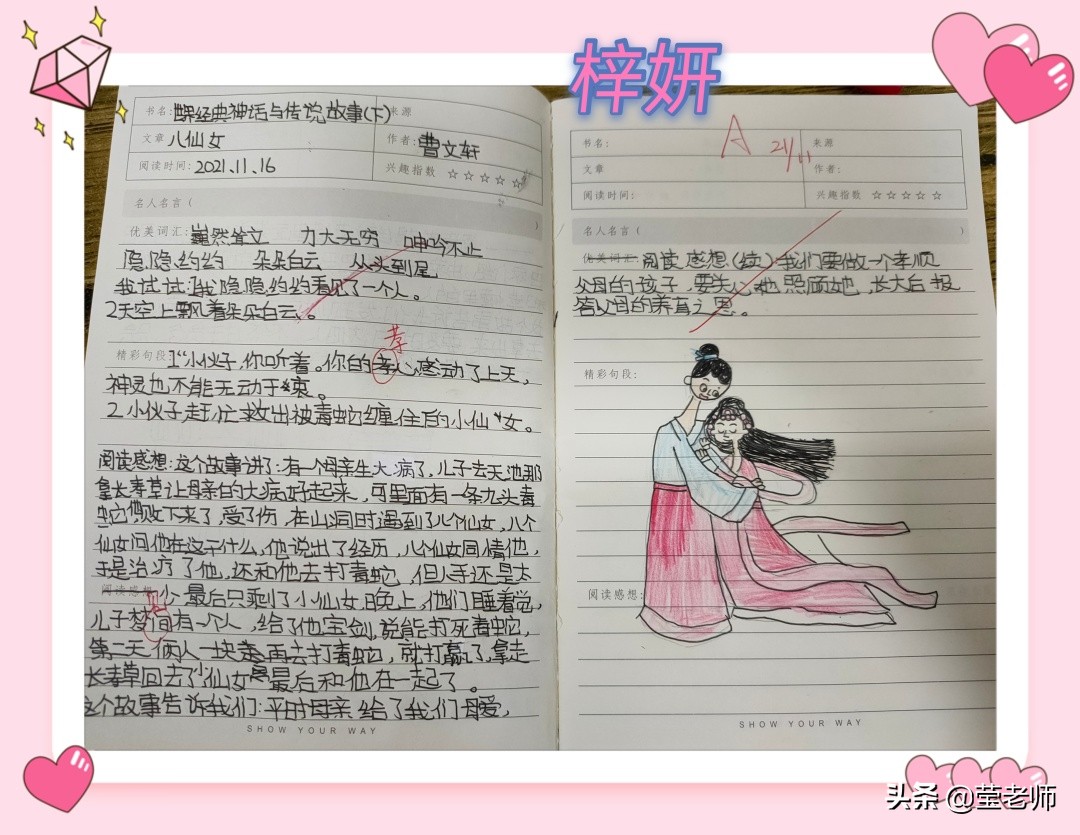 梓妍
书名: 经典神话与传说故事(下) 来源
文章 八仙女 作者: 曹文轩
阅读时间: 2021.11.16 兴趣指数 ☆☆☆☆☆
名人名言 (
)
优美词汇: 巍然耸立 力大无穷 呻吟不止
隐隐约约 朵朵白云 从头到尾
我试试:我隐隐约约看见了一个人。
2天空上飘着朵朵白云。
孝
精彩句段 1“小伙子,你听着。你的孝心感动了上天,
神灵也不能无动于衷。
2.小伙子赶忙救出被毒蛇缠住的小仙女。
阅读感想:这个故事讲了:有一个母亲生大病了,儿子去天池那
拿长寿草让母亲的大病好起来,可里面有一条九头毒
蛇他败下来了,受了伤,在山洞时遇到了八个仙女,八个
仙女问他在这干什么,他说出了经历,八个仙女同情他,
于是治疗了他,还和他去打毒蛇,但人手还是太
阅读感想: 少,最后只剩了小仙女,晚上,他们睡着觉,
见
儿子梦间有一个人,给了他宝剑,说能打死毒蛇,
第二天,俩人一块走再去打毒蛇,就打赢了,拿走
长寿草回去了小仙女最后和他在一起了。
这个故事告诉我们:平时母亲给了我们母爱,
SHOW YOUR WAY
A 21/11
书名: 来源
文章 作者:
阅读时间: 兴趣指数 ☆☆☆☆☆
名人名言 ( )
优美词汇: 阅读感想(续):我们要做一个孝顺
父母的孩子,要关心她照顾她,长大后报
答父母的养育之恩。
精彩句段:
阅读感想:
SHOW YOUR WAY
头条 @莹老师